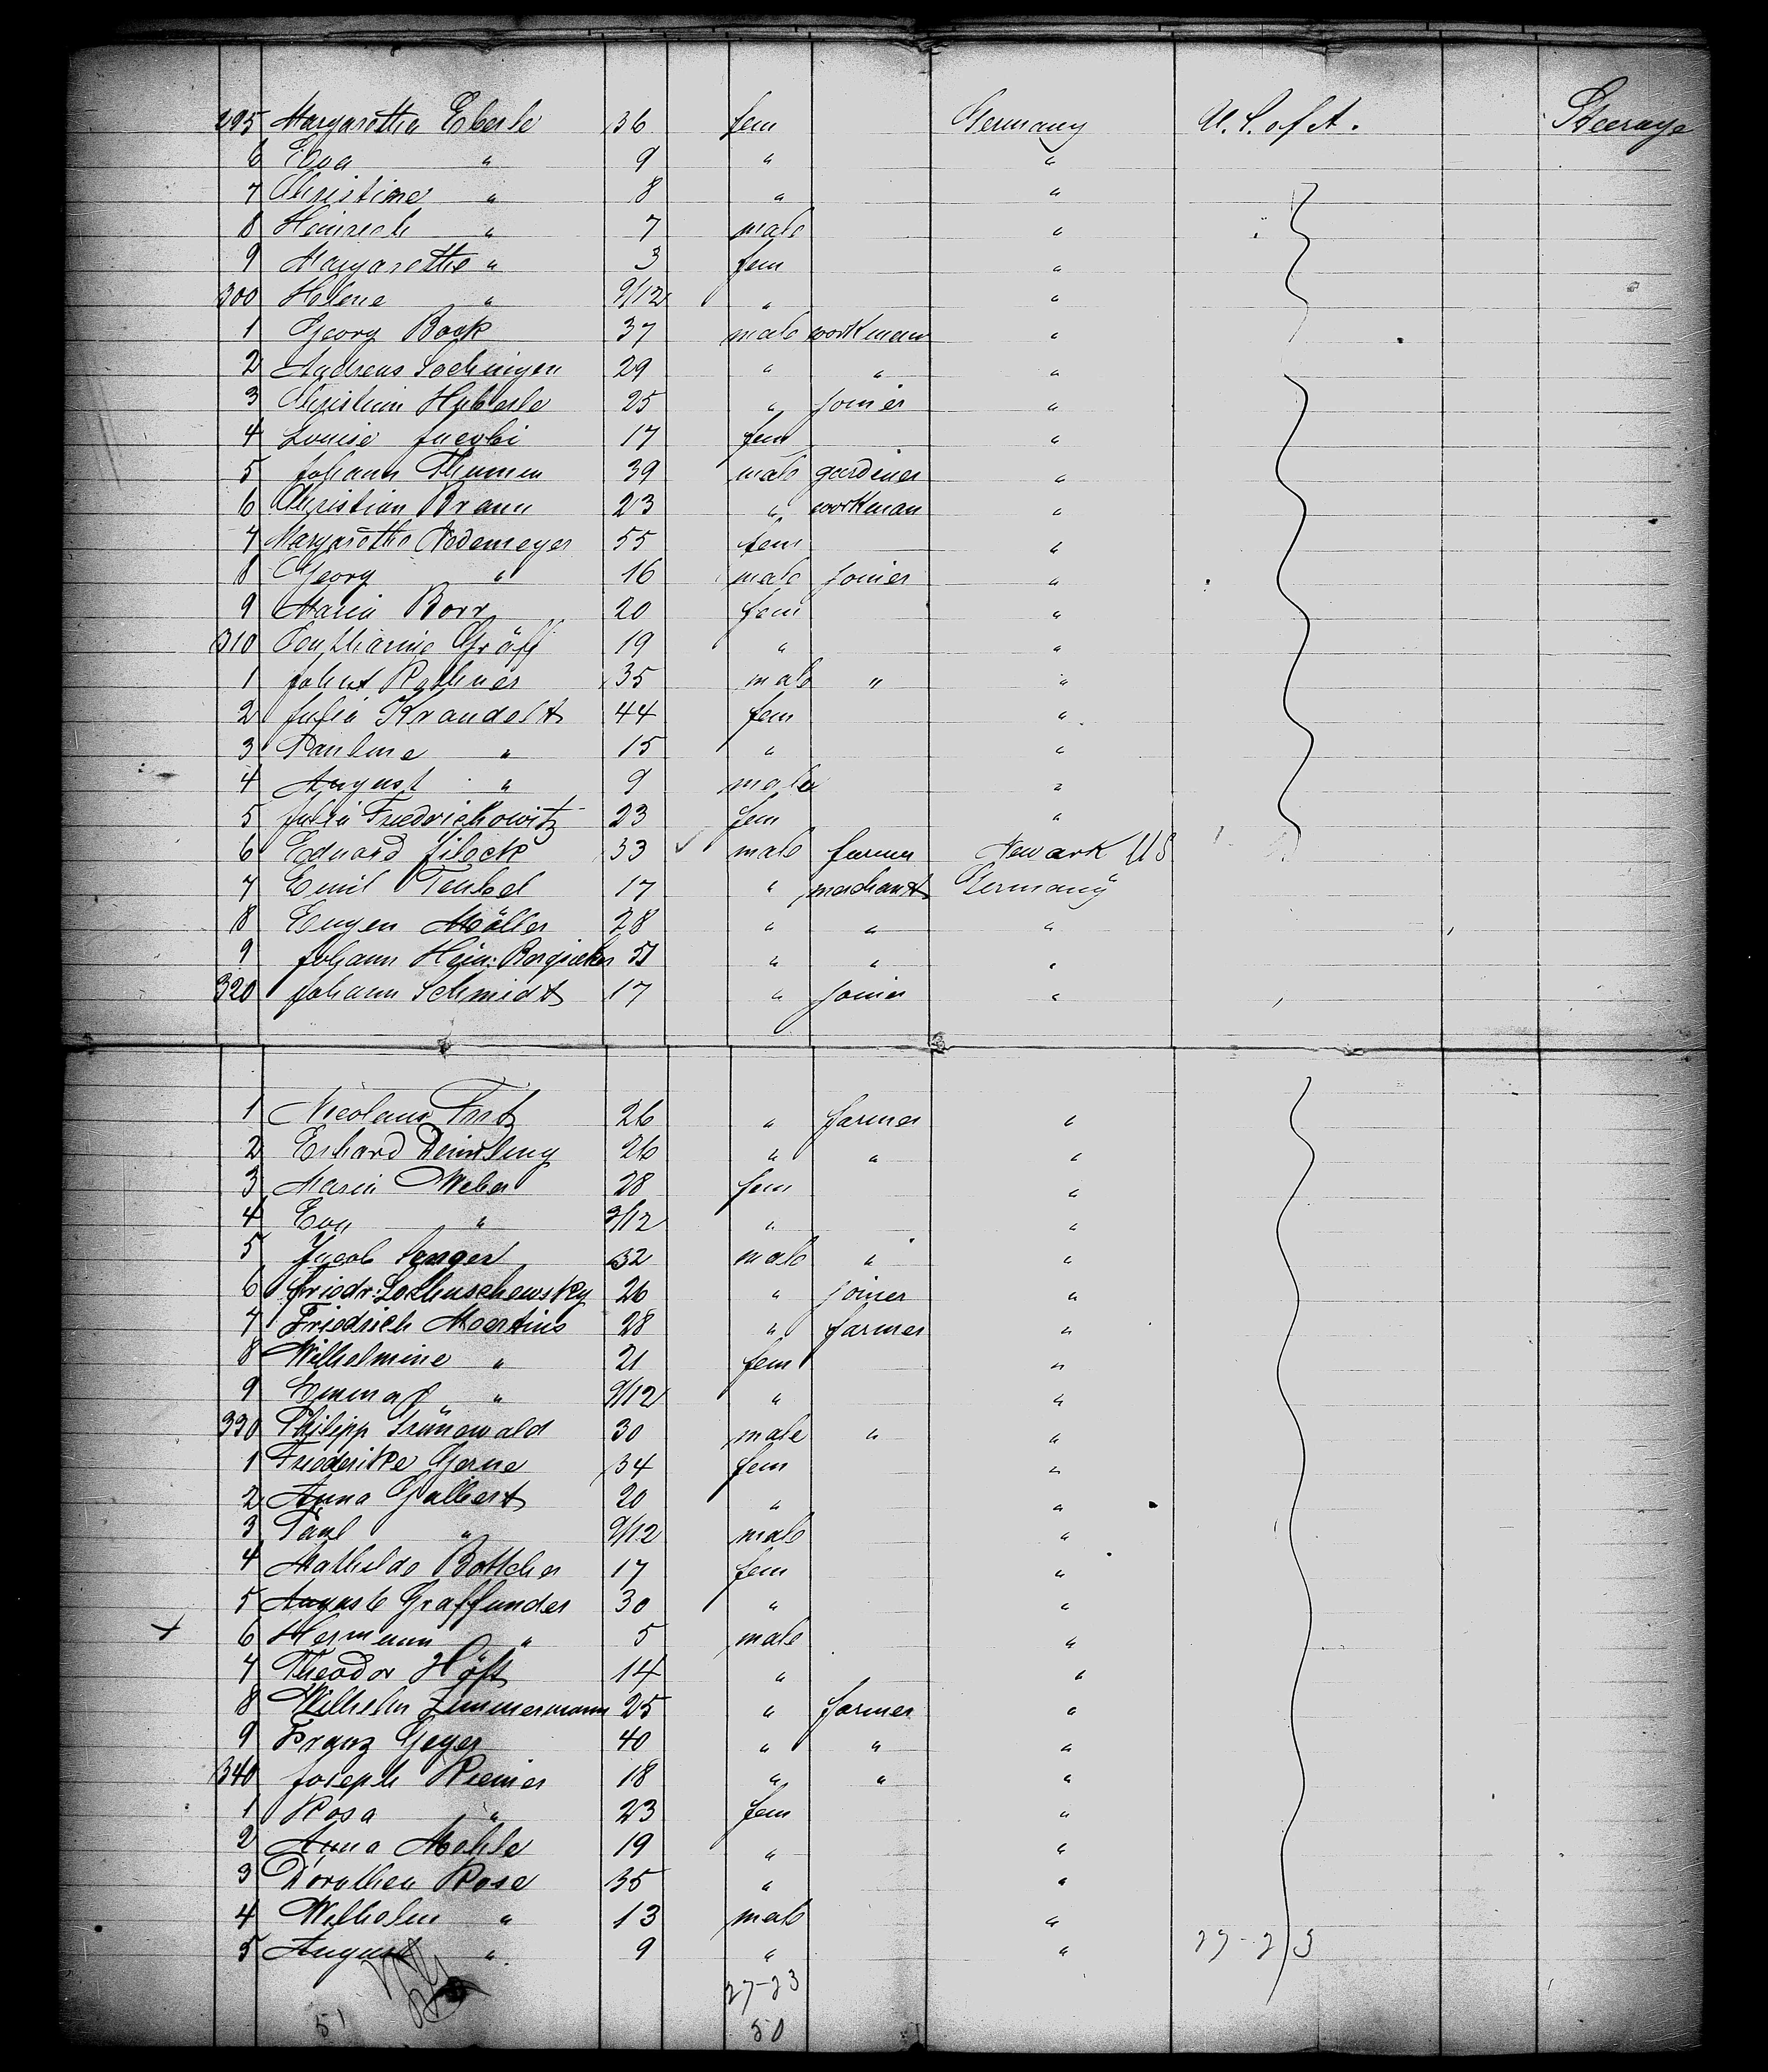 295 Margaretha Eberle 36 fem Germany U. S. of A. Steerage
6 Eva " 9 " "
7 Christine " 8 " "
8 Heinrich " 7 male "
9 Margarethe " 3 fem "
300 Helene " 9/12 " "
1 Georg Bock 37 male workman "
2 Andreas 29 " " "
3 Christian Häberle 25 " joiner "
4 Louise Jacobi 17 fem "
5 Johann Thumm 39 male gardiner "
6 Christian Braun 23 " workman "
7 Margarethe Nodemeyer 55 fem "
8 Georg " 16 male joiner "
9 Maria Borr 20 fem "
310 Gräff 19 " "
1 35 male " "
2 Julia Krandelt 44 fem "
3 Pauline " 15 " "
4 August " 9 male "
5 Julia Friedrichowitz 23 fem "
6 Eduard 33 male farmer Newark US
7 Emil 17 " merchant Germany
8 Eugen Möller 28 " " "
9 Johann Hein: " " "
320 Johann Schmidt 17 " joiner "
1 Nicolaus 26 " farmer "
2 Erhard Deimling 26 " " "
3 Maria Weber 28 fem "
4 Eva " 3/12 " "
5 Jacob 32 male " "
6 Friedr: 26 " joiner "
7 Friedrich Moertins 28 " farmer "
8 Wilhelmine " 21 fem "
9 Emma " 9/12 " "
330 Philipp Grünewald 30 male " "
1 Friederike Gerne 34 fem "
2 Anna Galbert 20 " "
3 Paul " 9/12 male "
4 Mathilde Bottcher 17 fem "
5 Auguste Graffunder 30 " "
6 Hermann " 5 male "
7 Theodor Höft 14 " "
8 Wilhelm Zimmermann 25 " farmer "
9 Franz Geyer 40 " " "
340 Joseph Riemer 18 " " "
1 Rosa " 23 fem "
2 Anna Mehle 19 " "
3 Dorothea Rose 35 " "
4 Wilhelm " 13 male "
5 August " 9 " " 27-23
27-23
51 50